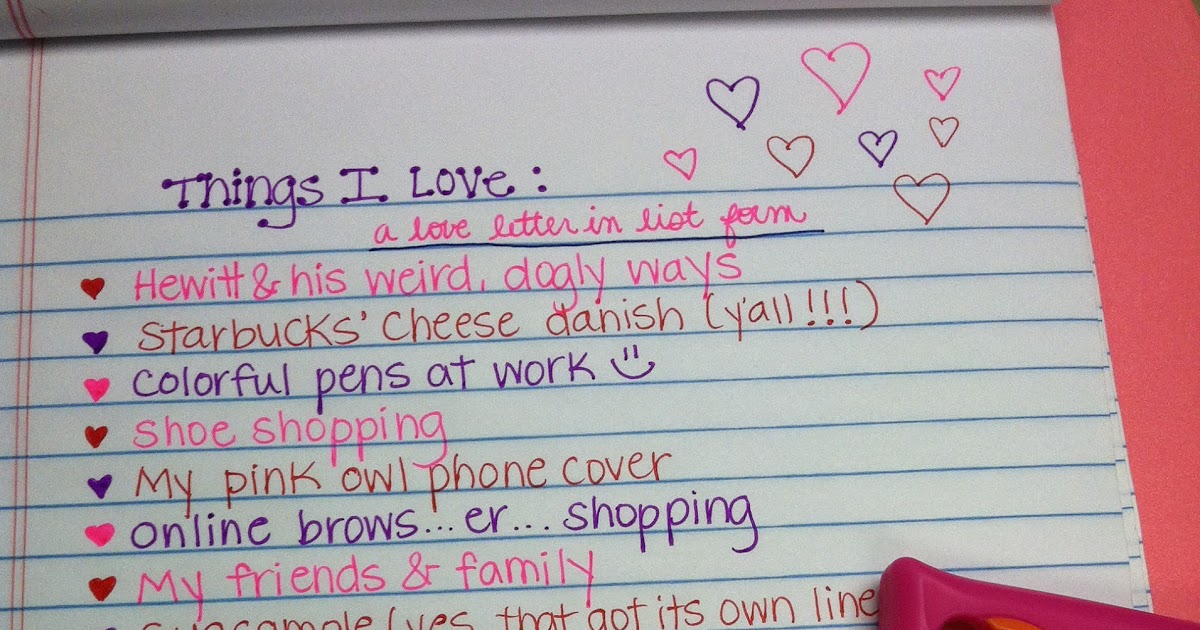 Things I Love:
a love letter in list form
Hewitt & his weird, dogly ways
Starbucks' cheese danish (y'all!!!)
colorful pens at work
shoe shopping
My pink owl phone cover
online brows...er... shopping
My friends & family
(yes, that got its own line